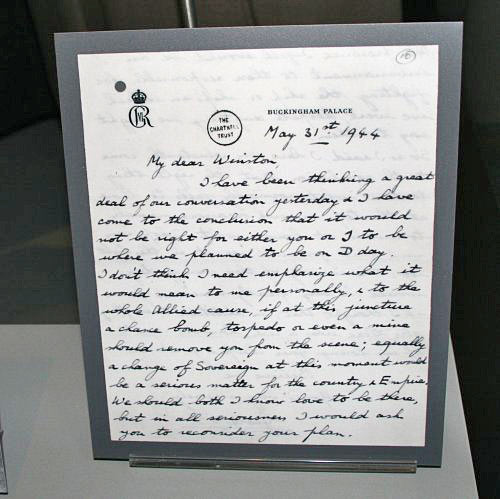 16
GRVI
THE
CHARTWELL
TRUST
BUCKINGHAM PALACE
May 31st 1944
My dear Winston
I have been thinking a great
deal of our conversation yesterday & I have
come to the conclusion that it would
not be right for either you or I to be
where we planned to be on D day.
I don't think I need emphasize what it
would mean to me personally, & to the
whole Allied cause, if at this juncture
a chance bomb, torpedo or even a mine
should remove you from the scene; equally
a change of Sovereign at this moment would
be a serious matter for the country & Empire.
We should both I know love to be there,
but in all seriousness I would ask
you to reconsider your plan.